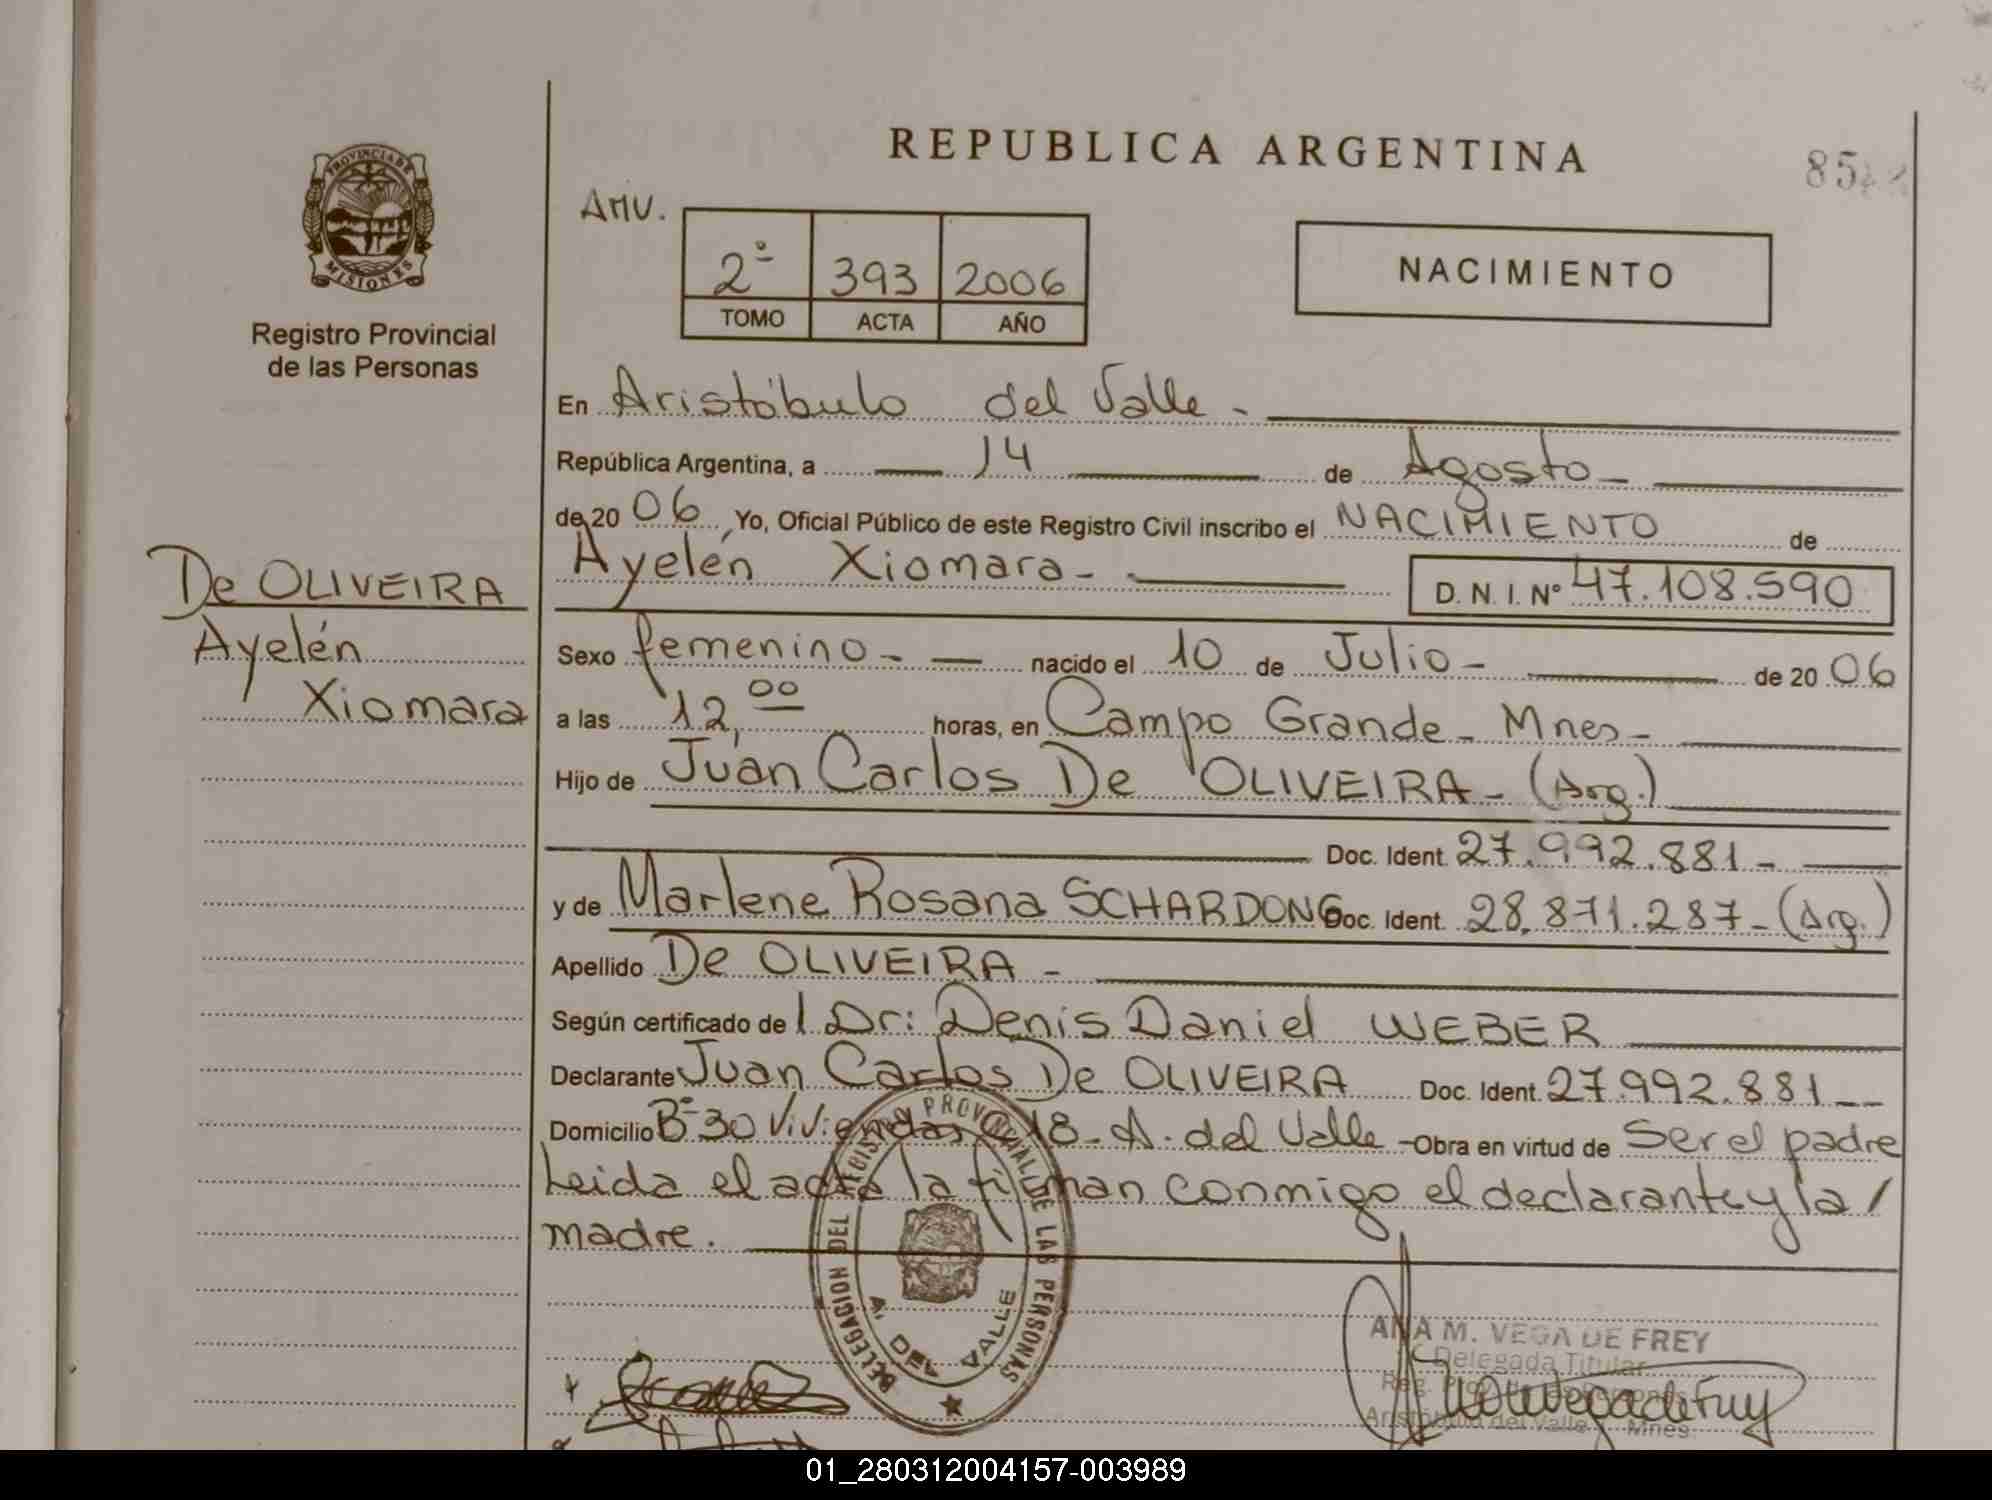 REPUBLICA ARGENTINA
85
PROVINCIA DE
MISIONES
Registro Provincial
de las Personas
AMV.
2º 393 2006
TOMO ACTA AÑO
NACIMIENTO
En Aristóbulo del Valle -
República Argentina, a 14 de Agosto -
de 20 06 Yo, Oficial Público de este Registro Civil inscribo el NACIMIENTO de
Ayelén Xiomara - D. N. I. Nº 47.108.590
De OLIVEIRA
Ayelén
Xiomara
Sexo femenino - - nacido el 10 de Julio - de 20 06
a las 12,00 horas, en Campo Grande - Mnes -
Hijo de Juan Carlos De OLIVEIRA - (Arg.)
Doc. Ident. 27.992.881 -
y de Marlene Rosana SCHARDONG Doc. Ident. 28.871.287 - (Arg.)
Apellido De OLIVEIRA -
Según certificado de l Dr: Denis Daniel WEBER
Declarante Juan Carlos De OLIVEIRA Doc. Ident. 27.992.881 --
Domicilio Bº 30 Viviendas C 18 - A. del Valle - Obra en virtud de Ser el padre
Leida el acta la firman conmigo el declarante y la /
madre.
DELEGACION DEL REGISTRO PROVINCIAL DE LAS PERSONAS
A. DEL VALLE
ANA M. VEGA DE FREY
Delegada Titular
Reg. Prov. de las Personas
Aristóbulo del Valle - Mnes.
01_280312004157-003989